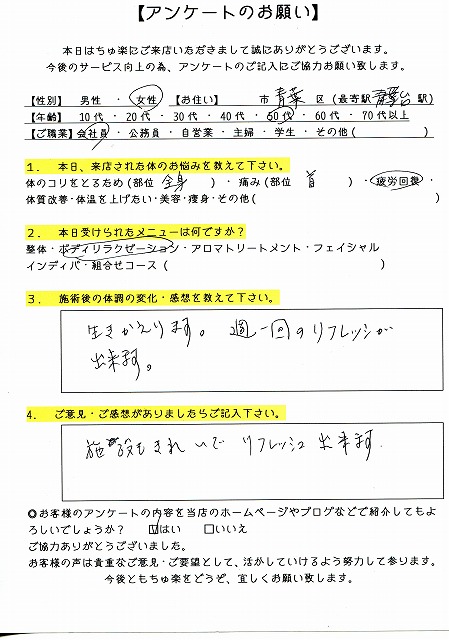 【アンケートのお願い】
本日はちゅ楽にご来店いただきまして誠にありがとうございます。
今後のサービス向上の為、アンケートのご記入にご協力お願い致します。
【性別】 男性 ・ 女性 【お住い】 市 青葉 区 (最寄駅 青葉台 駅)
【年齢】 10代 ・ 20代 ・ 30代 ・ 40代 ・ 50代 ・ 60代 ・ 70代以上
【ご職業】会社員 ・ 公務員 ・ 自営業 ・ 主婦 ・ 学生 ・ その他( )
1. 本日、来店された体のお悩みを教えて下さい。
体のコリをとるため(部位 全身 ) ・ 痛み(部位 首 ) ・ 疲労回復 ・
体質改善・体温を上げたい・美容・痩身・その他( )
2. 本日受けられたメニューは何ですか?
整体・ボディリラクゼーション・アロマトリートメント・フェイシャル
インディバ・組合せコース( )
3. 施術後の体調の変化・感想を教えて下さい。
生きかえります。週一回のリフレッシュが
出来ます。
4. ご意見・ご感想がありましたらご記入下さい。
施設もきれいで リフレッシュ 出来ます.
◎お客様のアンケートの内容を当店のホームページやブログなどで紹介してもよ
ろしいでしょうか? ☑はい □いいえ
ご協力ありがとうございました。
お客様の声は貴重なご意見・ご要望として、活かしていけるよう努力して参ります。
今後ともちゅ楽をどうぞ、宜しくお願い致します。